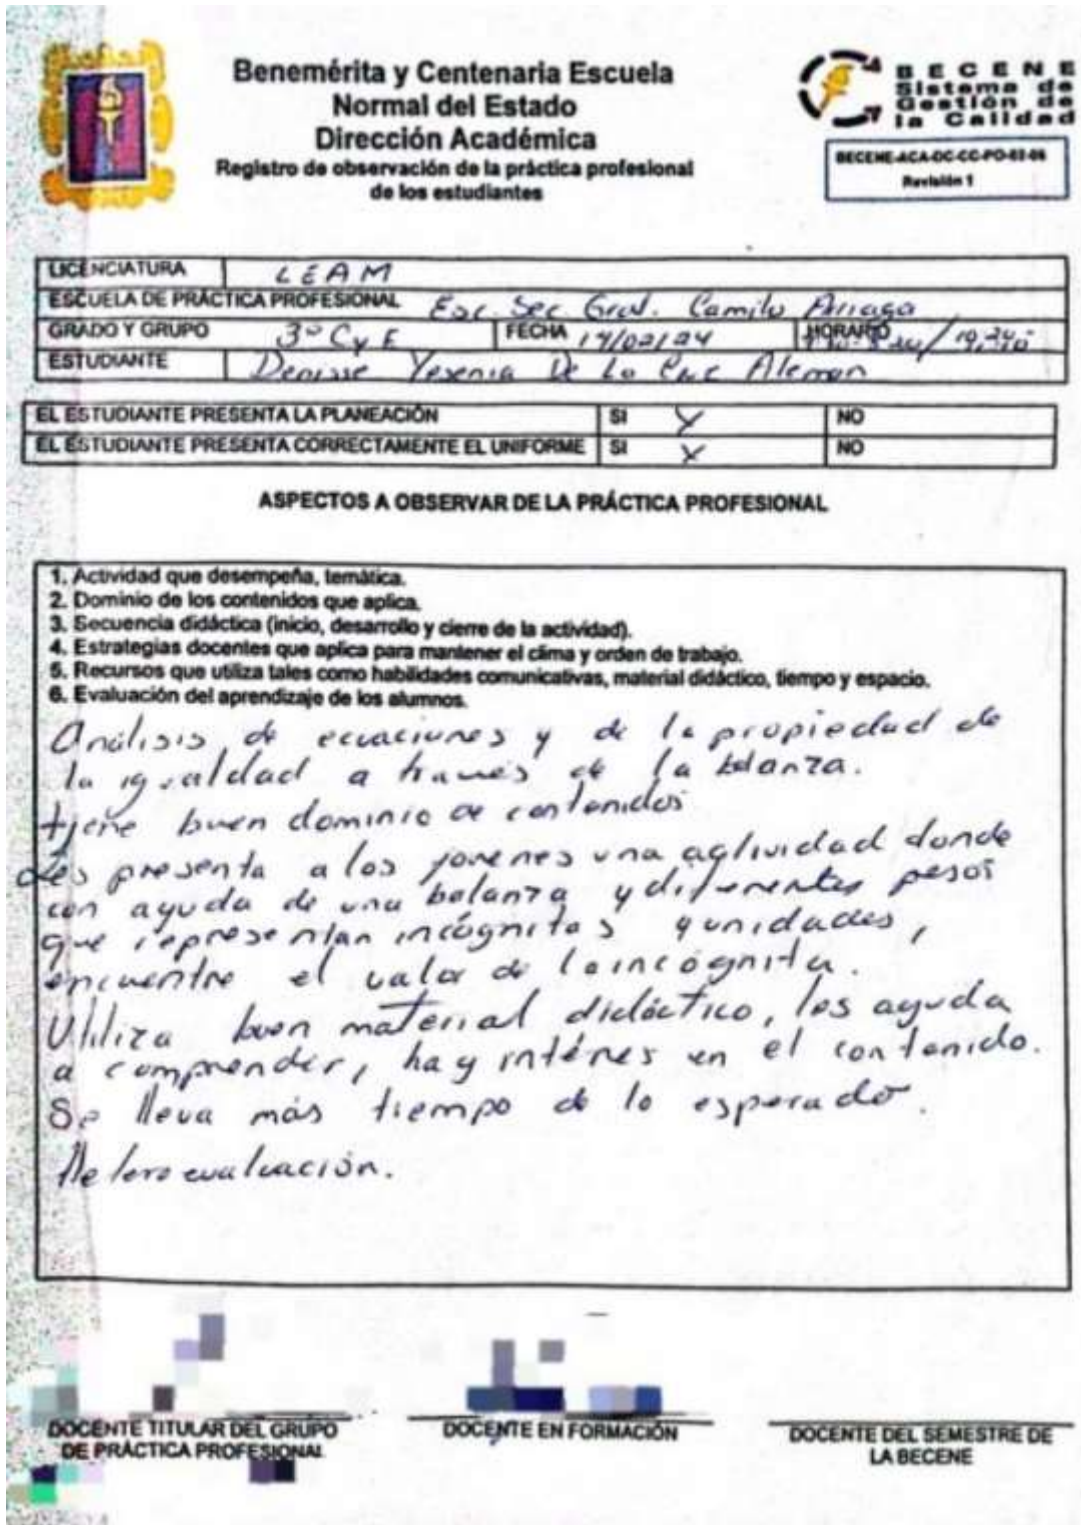 Benemérita y Centenaria Escuela
Normal del Estado
Dirección Académica
Registro de observación de la práctica profesional
de los estudiantes
BECENE
Sistema de
Gestión de
la Calidad
BECENE-ACA-DC-CC-PO-03-06
Revisión 1
LICENCIATURA LEAM
ESCUELA DE PRÁCTICA PROFESIONAL Esc. Sec. Gral. Camilo Arriaga
GRADO Y GRUPO 3° C y E FECHA 14/02/24 HORARIO
ESTUDIANTE Denisse Yesenia De La Cruz Aleman
EL ESTUDIANTE PRESENTA LA PLANEACIÓN SI X NO
EL ESTUDIANTE PRESENTA CORRECTAMENTE EL UNIFORME SI X NO
ASPECTOS A OBSERVAR DE LA PRÁCTICA PROFESIONAL
1. Actividad que desempeña, temática.
2. Dominio de los contenidos que aplica.
3. Secuencia didáctica (inicio, desarrollo y cierre de la actividad).
4. Estrategias docentes que aplica para mantener el clima y orden de trabajo.
5. Recursos que utiliza tales como habilidades comunicativas, material didáctico, tiempo y espacio.
6. Evaluación del aprendizaje de los alumnos.
Análisis de ecuaciones y de la propiedad de
la igualdad a través de la balanza.
tiene buen dominio de contenidos
Les presenta a los jovenes una actividad donde
con ayuda de una balanza y diferentes pesos
que representan incógnitas y unidades,
encuentre el valor de la incógnita.
Utiliza buen material didáctico, los ayuda
a comprender, hay intéres en el contenido.
Se lleva más tiempo de lo esperado.
Heteroevaluación.
DOCENTE TITULAR DEL GRUPO
DE PRÁCTICA PROFESIONAL
DOCENTE EN FORMACIÓN
DOCENTE DEL SEMESTRE DE
LA BECENE